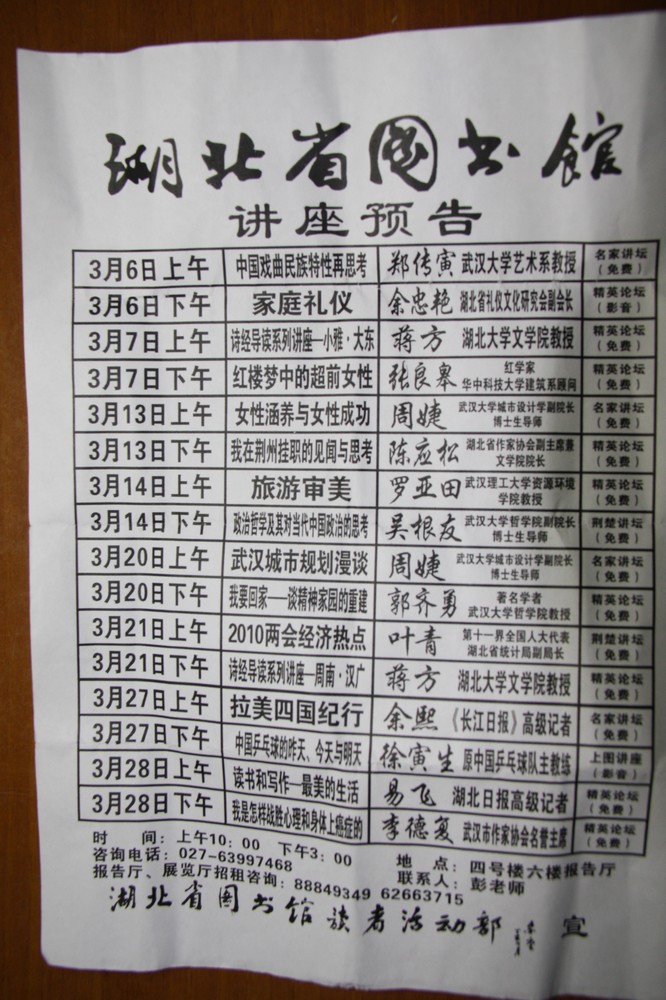 湖北省图书馆
讲座预告
3月6日上午 中国戏曲民族特性再思考 郑传寅 武汉大学艺术系教授 名家讲坛（免费）
3月6日下午 家庭礼仪 余忠艳 湖北省礼仪文化研究会副会长 精英论坛（影音）
3月7日上午 诗经导读系列讲座—小雅·大东 蒋方 湖北大学文学院教授 精英论坛（免费）
3月7日下午 红楼梦中的超前女性 张良皋 红学家 华中科技大学建筑系顾问 精英论坛（免费）
3月13日上午 女性涵养与女性成功 周婕 武汉大学城市设计学副院长 博士生导师 名家讲坛（免费）
3月13日下午 我在荆州挂职的见闻与思考 陈应松 湖北省作家协会副主席兼文学院院长 精英论坛（免费）
3月14日上午 旅游审美 罗亚田 武汉理工大学资源环境学院教授 精英论坛（免费）
3月14日下午 政治哲学及其对当代中国政治的思考 吴根友 武汉大学哲学院副院长 博士生导师 荆楚讲坛（免费）
3月20日上午 武汉城市规划漫谈 周婕 武汉大学城市设计学副院长 博士生导师 名家讲坛（免费）
3月20日下午 我要回家——谈精神家园的重建 郭齐勇 著名学者 武汉大学哲学院教授 精英论坛（免费）
3月21日上午 2010两会经济热点 叶青 第十一界全国人大代表 湖北省统计局副局长 荆楚讲坛（免费）
3月21日下午 诗经导读系列讲座—周南·汉广 蒋方 湖北大学文学院教授 精英论坛（免费）
3月27日上午 拉美四国纪行 余熙 《长江日报》高级记者 名家讲坛（免费）
3月27日下午 中国乒乓球的昨天、今天与明天 徐寅生 原中国乒乓球队主教练 上图讲座（影音）
3月28日上午 读书和写作—最美的生活 易飞 湖北日报高级记者 精英论坛（免费）
3月28日下午 我是怎样战胜心理和身体上癌症的 李德复 武汉市作家协会名誉主席 精英论坛（免费）
时 间：上午10：00 下午3：00 地 点：四号楼六楼报告厅
咨询电话：027-63997468 联系人：彭老师
报告厅、展览厅招租咨询：88849349 62663715
湖北省图书馆读者活动部 宣